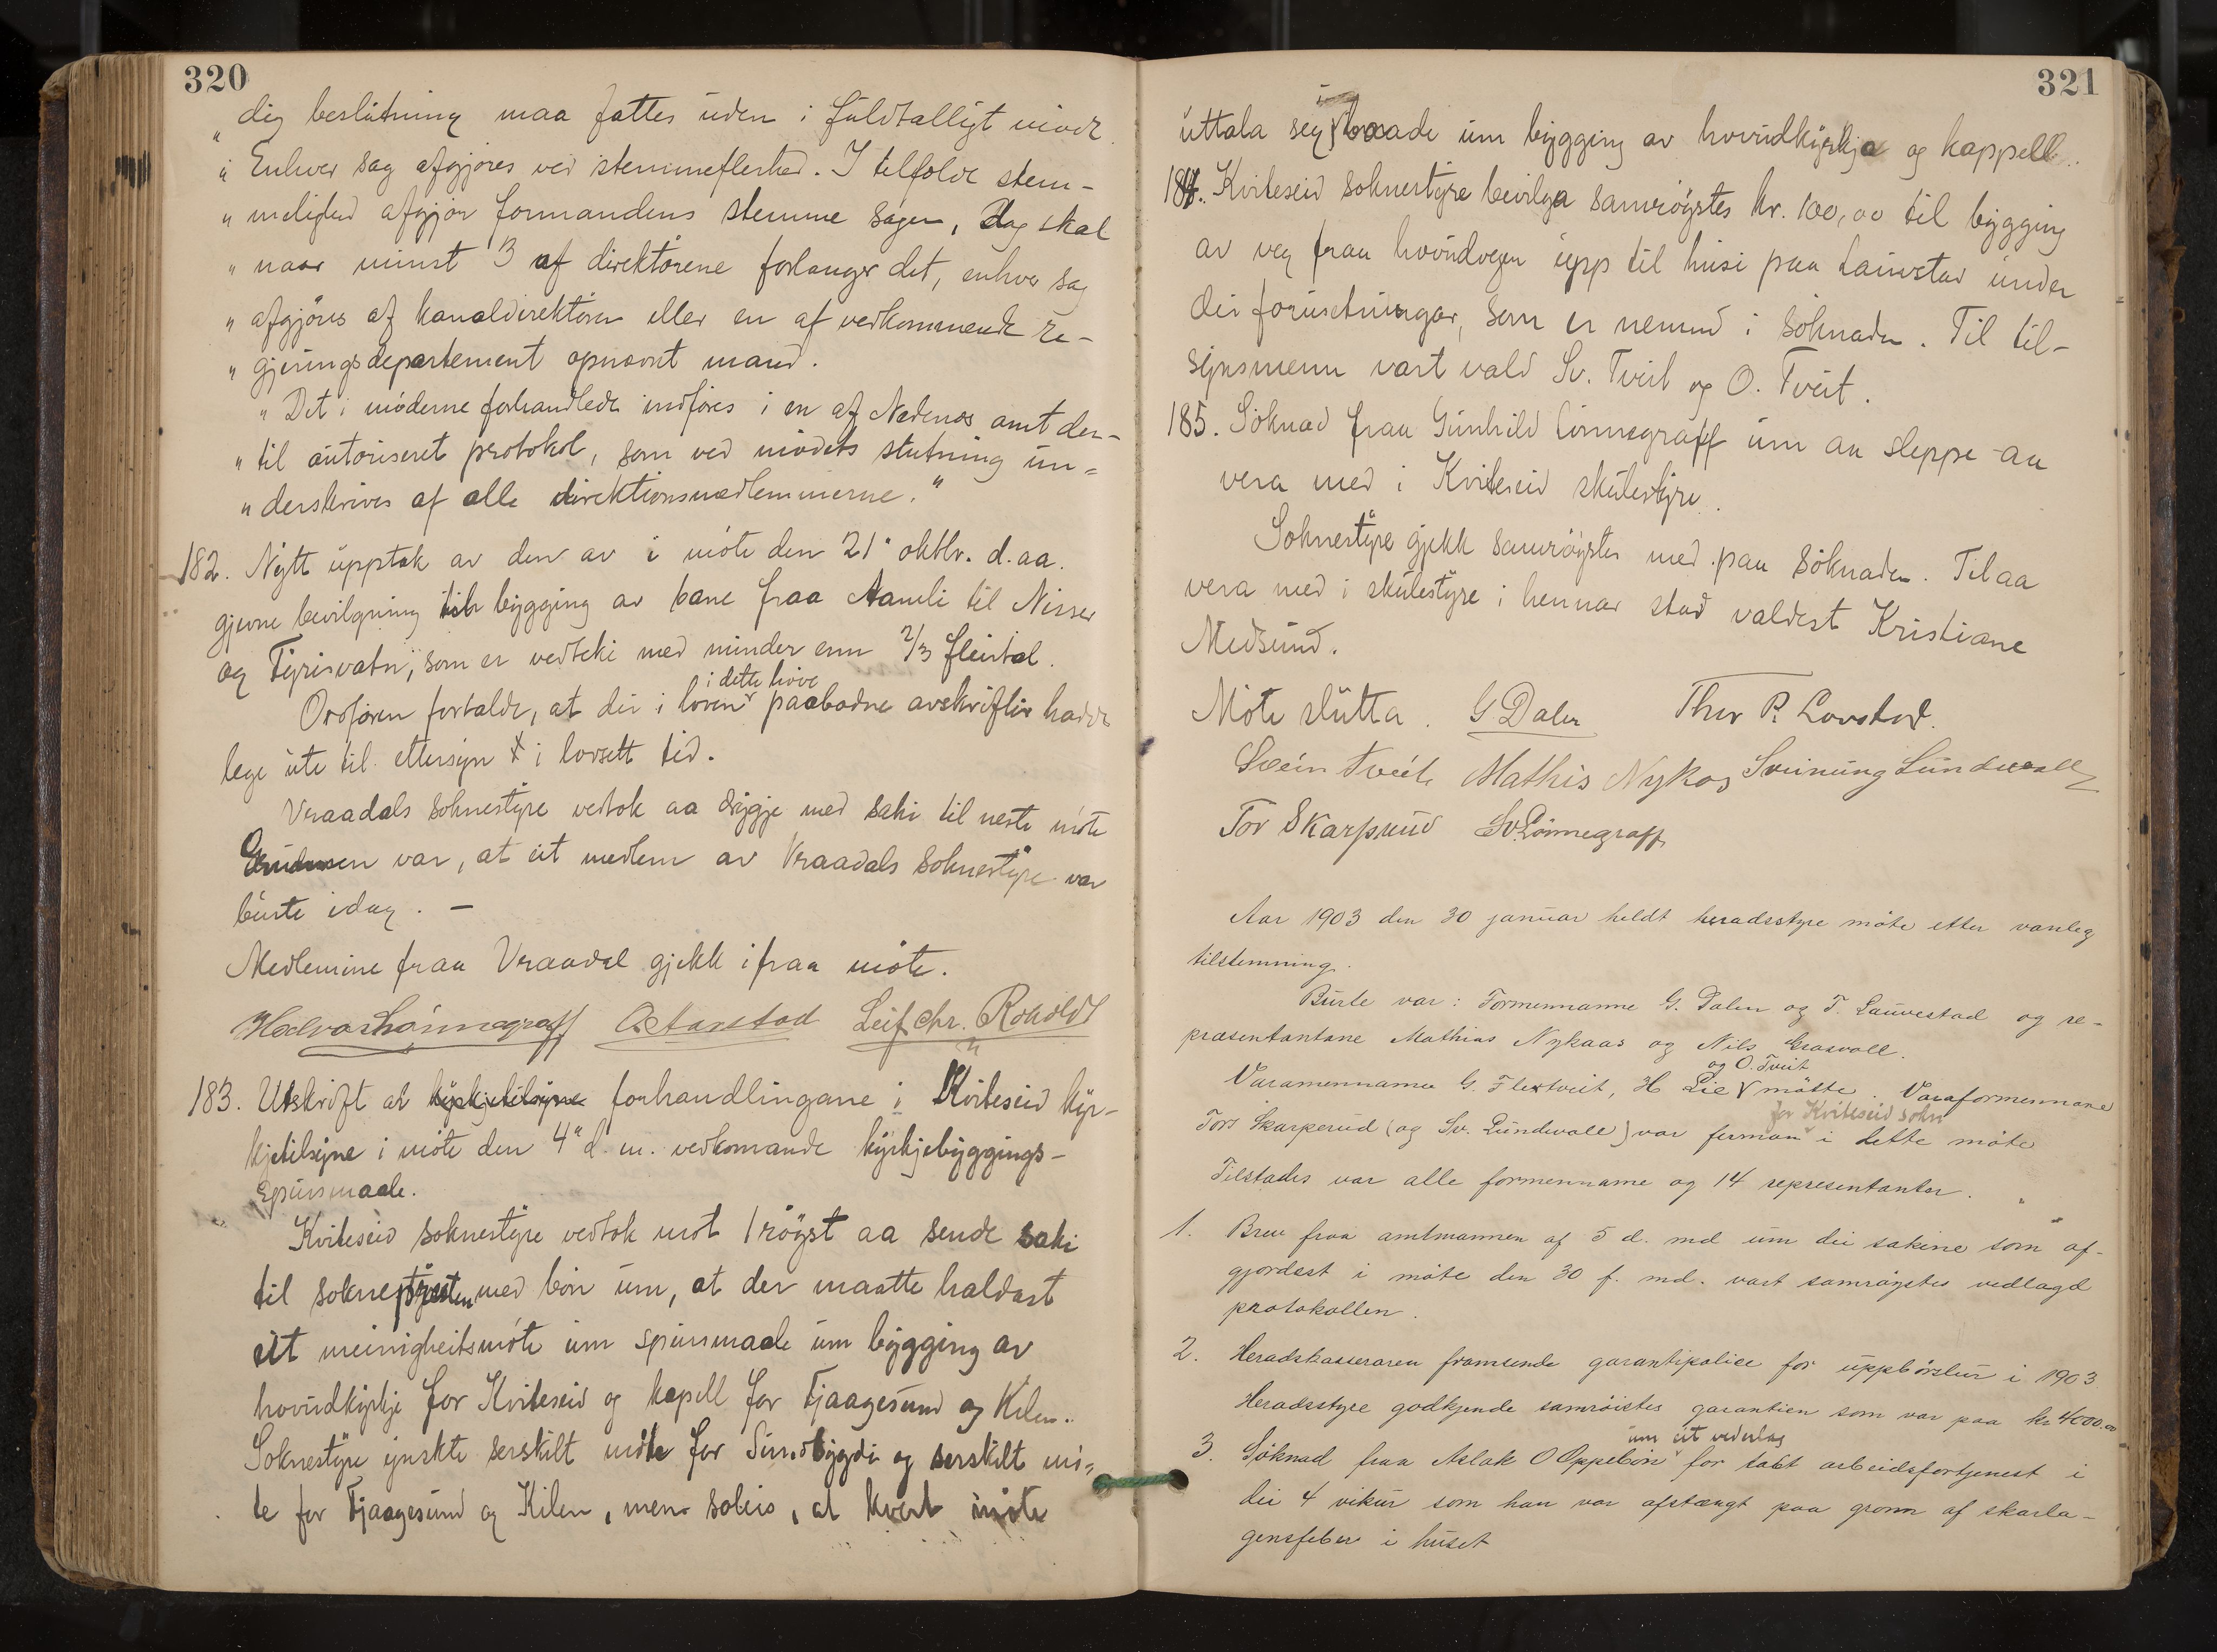 320
„ dig beslutning maa fattes uden i fuldtalligt möde.
„ Enhver sag afgjöres ved stemmeflerhed. I tilfælde stem-
„ melighed afgjör formandens stemme sagen, dog skal
„ naar minst 3 af direktörene forlanger det, enhver sag
„ afgjöres af kanaldirektören eller en af vedkommende re-
„ gjeringsdepartement opnævnt mand.
„ Det i möderne forhandlede indföres i en af Nedenes amt der-
„ til autoriseret protokol, som ved mödets slutning un-
„ derskrives af alle direktionsmedlemmerne."
182. Nytt upptak av den av i möte den 21" oktbr. d. aa.
gjevne bevilgning til bygging av bane fraa Aamli til Nisser
og Fyrisvatn, som er vedteki med minder enn 2/3 fleirtal.
i dette höve
Ordforen fortalde, at dei i loven paabodne avskrifter hadde
lege ute til ettersyn i lovsett tid.
Vraadals soknestyre vedtok aa dryggje med saki til neste möte
Grunnen var, at eit medlem av Vraadals soknestyre var
burte idag. —
Medlemine fraa Vraadal gjekk ifraa möte.
Halvor Lönnegraff O. Aarstad Leif Chr. Roholdt
183. Utskrift at kyrkjetilsyne forhandlingane i Kviteseid kyr-
kjetilsyne i möte den 4" d. m. vedkomande kyrkjebyggings-
spursmaale.
Kviteseid soknestyre vedtok mot 1 röyst aa sende saki
til soknepresten med bön um, at der maatte haldast
eit meinigheitsmöte um spursmaale um bygging av
hovudkyrkje for Kviteseid og kapell for Fjaagesund og Kilen.
Soknestyre ynskte serskilt möte for Sundbygdi og serskilt mö-
te for Fjaagesund og Kilen, men soleis, at kvert möte
321
uttala seg baade um bygging av hovudkyrkja og kappell.
184. Kviteseid soknestyre bevilga samröystes kr. 100,00 til bygging
av veg fraa hovudvegen upp til husi paa Lauvstad under
dei foruisetningar, som er nemnd i söknaden. Til til-
synsmenn vart vald Sv. Tveit og O. Tveit.
185. Söknad fraa Gunhild Lönnegraff um aa sleppe aa
vera med i Kviteseid skulestyre.
Soknestyre gjekk samröystes med paa söknaden. Til aa
vera med i skulestyre i hennar stad valdest Kristiane
Midsund.
Möte slutta. G Dalen Thor P. Lovstad.
Svein Tveit Mathis Nykos Sveinung Lundevall
Tor Skarprud Sv. Lönnegraff
Aar 1903 den 30 januar heldt heradsstyre möte etter vanleg
tilstemning.
Burte var: Formennanne G. Dalen og T. Lauvestad og re-
præsentantane Mathias Nykaas og Nils Grasvoll.
og O. Tveit
Varamennanne G. Flextveit, H Lie mötte. Varaformennane
for Kviteseid sokn
Tors Skarperud (og Sv. Lundevall) var forman i dette möte
Tilstades var alle formenname og 14 representantar.
1. Brev fraa amtmannen af 5 d. md um dei sakine som af-
gjordest i möte den 30 f. md. vart samröystes vedlagd
protokollen.
2. Heradskasseraren framsende garantipolice for uppbörslur i 1903
Heradsstyre godkjende samröistes garantien som var paa kr 4000.00
um eit vederlag
3. Söknad fraa Aslak O Oppebön for tabt arbeidsfortjenest i
dei 4 vikur som han var afstængt paa gronn af skarla-
gensfeber i huset